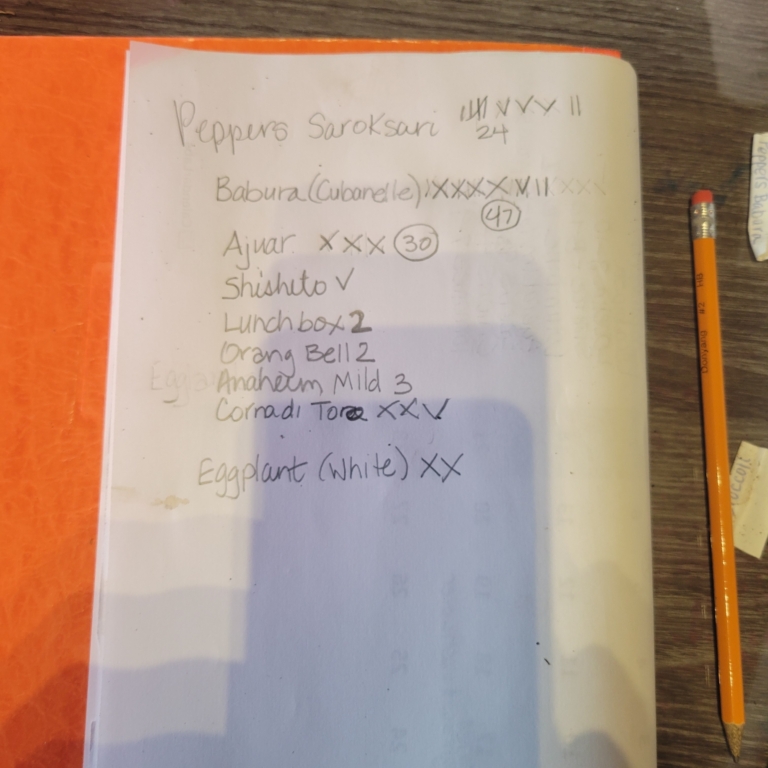 Peppers Saroksari 𝍸 V V V II
24
Babura (Cubanelle) XXXX V II XXX
47
Ajuar X X X 30
Shishito V
Lunchbox 2
Orang Bell 2
Anaheim Mild 3
Cornadi Toro XXV
Eggplant (White) XX
Donyang #2 HB
Peppers Babura